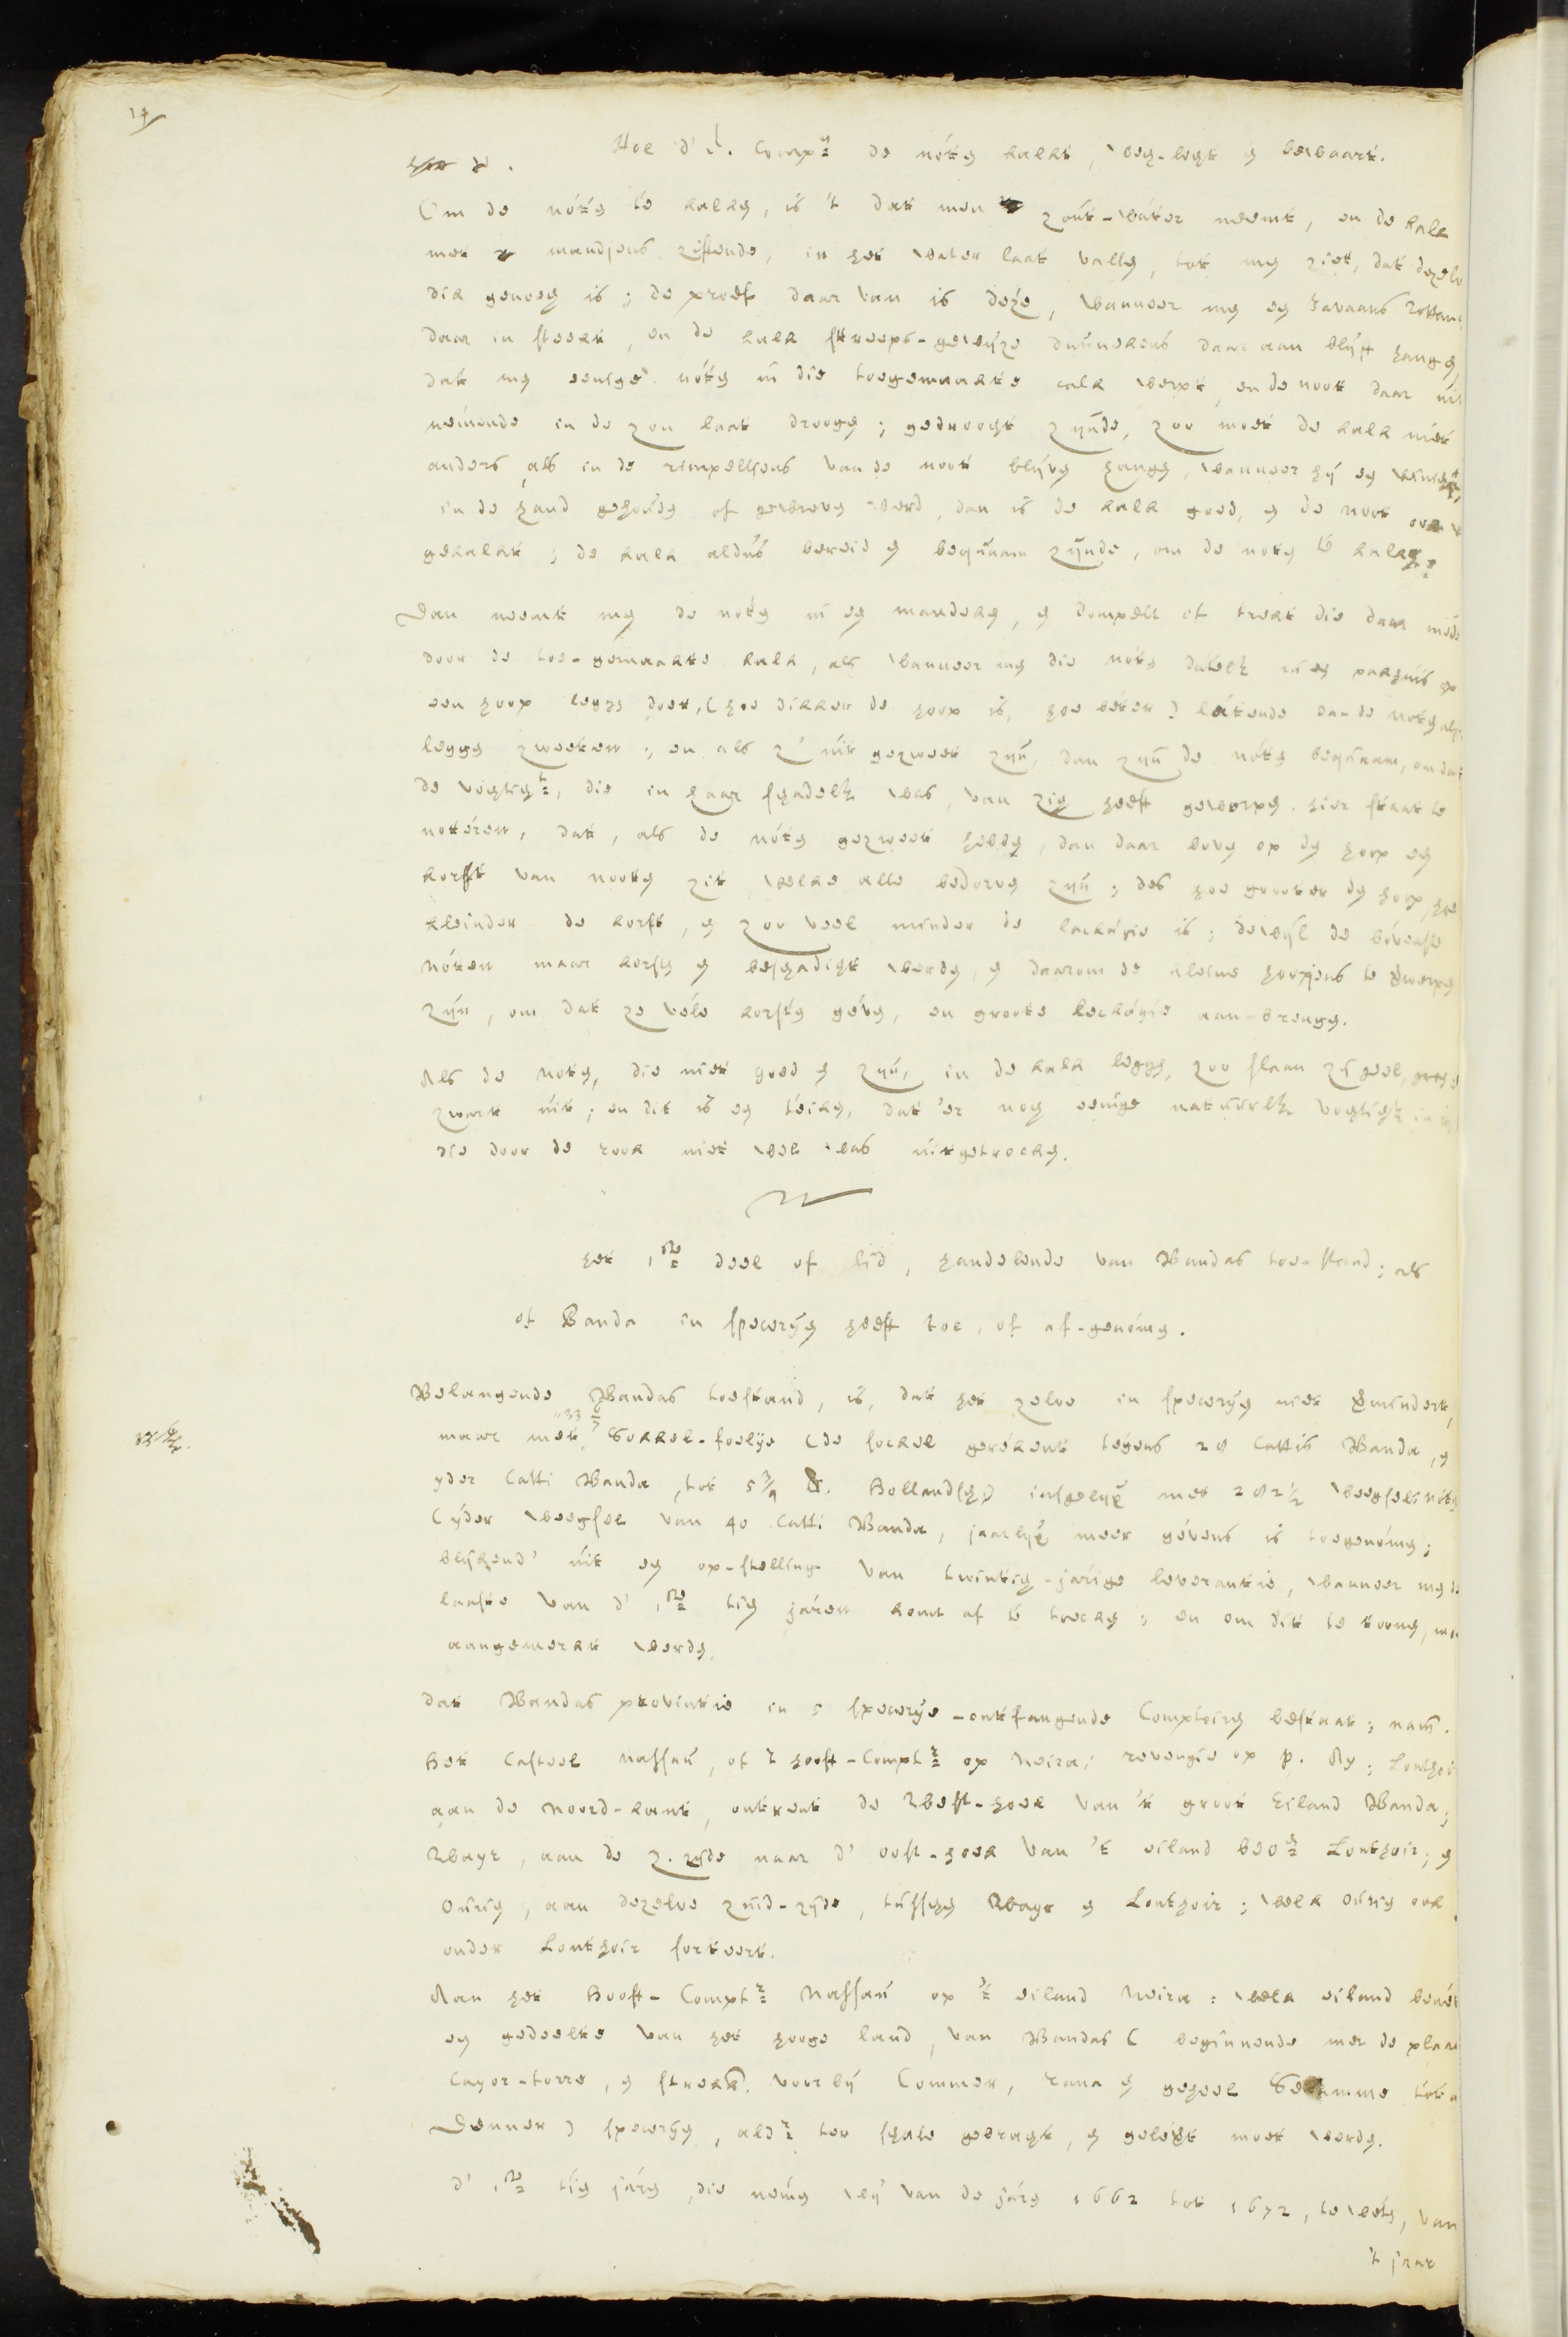 14
Hoe d' E. Comp.e de nóten kalkt, weg-legt en bewaart.
Om de nóten te kalken, is 't dat men zout-water neemt, en de kalk
met mandjens ziftende, in het water laat vallen, tot men ziet, dat dezelv
dik genoeg is; de proef daar van is deze, wanneer men een Javaans Rottan
daar in steekt, en de kalk streeps-gewijze dunnekens daar aan blijft hangen,
dat men eenige nóten in die toegemaakte calk werpt, en de noot daar uit
neimende in de zon laat droogen; gedroogt zijnde, zoo moet de kalk niet
anders, als in de rimpeltjens van de noot blijven hangen, wanneer hij een weinig
in de hand gehouden of gevreven werd, dan is de kalk goed, en de noot
gekalkt; de kalk aldus bereid en bequaam zijnde, om de noten te kalken:
Dan neemt men de noten in een mandeken, en dompelt of trekt die daar méde
door de toe-gemaakte kalk, als wanneer men die nóten datelk in een pakhuis op
een hoop leggen doet, (hoe dikker de hoop is, hoe béter) látende dan de noten
leggen zweeten; en als z' uit gezweet zijn, dan zijn de nóten bequaam, om dat
de vogtigt, die in haar schadelk was, van zig heeft geworpen. hier staat te
notéren, dat, als de nóten gezweet hebben, dan daar boven op den hoop een
korst van nooten zit, welke alle bedorven zijn; des hoe grooter den hoop, hoe
kleinder de korst, en zoo veel minder de leckágie is; dewijl de bóvenste
nóten maar korsten en beschadigt werden, en daarom de kleine hoopjens te verwerpen
zijn, om dat ze véle korsten géven, en groote leckágie aan-brengen.
Als de noten, die niet goed en zijn, in de kalk leggen, zoo slaan zij geel, en
zwart uit; en dit is een teiken, dat 'er nog eenige natuurlk vogtigh in is,
die door de rook niet wel was uitgetrocken.
het 1ste deel of lid, handelende van Bandas toe-stand; als
of Banda in specerijen heeft toe, of af-genómen.
Belangende Bandas toestand, is, dat het zelve in specerijen niet vermindert,
maar met 33 Sockel-foelije (de sockel gerékent tegens 28 Cattis Banda, en
yder Catti Banda, tot 5 3/4 lb. Hollandsche) insgelijx met 282 1/2 weegsel nóten
(yder weegsel van 40 Catti Banda, jaarlijx meer gévens is toegenómen;
blijkend' uit een op-stelling van twintig-jarige leverantie, wanneer men de
laaste van d' 1ste tien járen komt af te trecken; en om dit te toonen,
aangemerkt werden.
dat Bandas provintie in 5 specerije-ontfangende Comptoiren bestaat; nam.
Het Casteel Nassau, of 't hooft-Compt.r op Neira; revengie op p. Ay; Lonthoir
aan de Noord-kant, ontrent de West-hoek van 't groot Eiland Banda;
Wayr, aan de z. zijde naar d' oost-hoek van 't eiland Lonthoir; en
Ouring, aan dezelve zuid-zijde, tusschen Wayr en Lonthoir; welk Ouring ook
onder Lonthoir sorteert.
Aan het Hooft-Compt.r Nassau op 't eiland Neira: welk eiland
een gedeelte van het hooge land, van Bandas (beginnende met de plaat
Cayor-torre, en strekk. voor bij Commer, rana en geheel
Denner) specerijen, ald.r ter schale gebragt, en geleevt moet werden.
d' 1ste tien jaren, die nemen wij van de járen 1662 tot 1672, te weten, van
't jaar